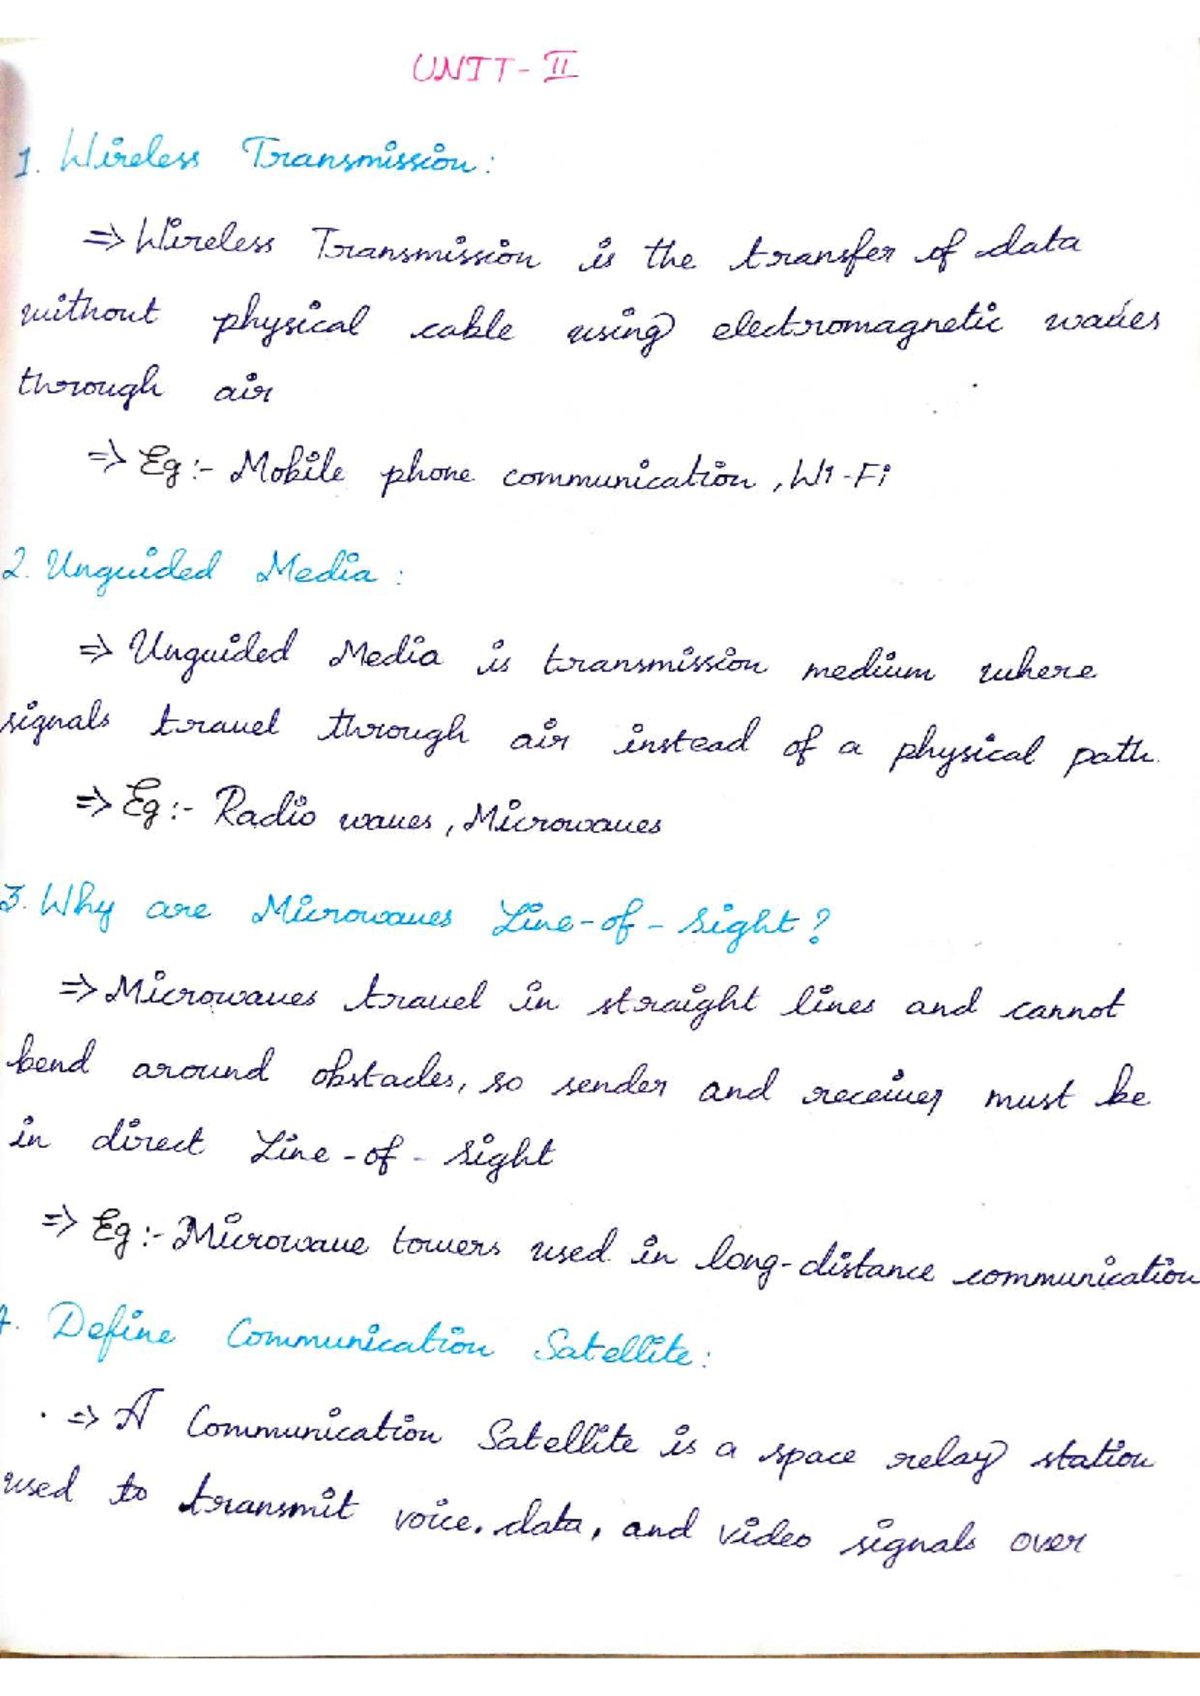 UNIT-II
1. Wireless Transmission:
=> Wireless Transmission is the transfer of data
without physical cable using electromagnetic waves
through air
=> Eg:- Mobile phone communication, Wi-Fi
2. Unguided Media:
=> Unguided Media is transmission medium where
signals travel through air instead of a physical path.
=> Eg:- Radio waves, Microwaves
3. Why are Microwaves Line-of-Sight?
=> Microwaves travel in straight lines and cannot
bend around obstacles, so sender and receiver must be
in direct Line-of-Sight
=> Eg:- Microwave towers used in long-distance communication
4. Define Communication Satellite:
=> A Communication Satellite is a space relay station
used to transmit voice, data, and video signals over